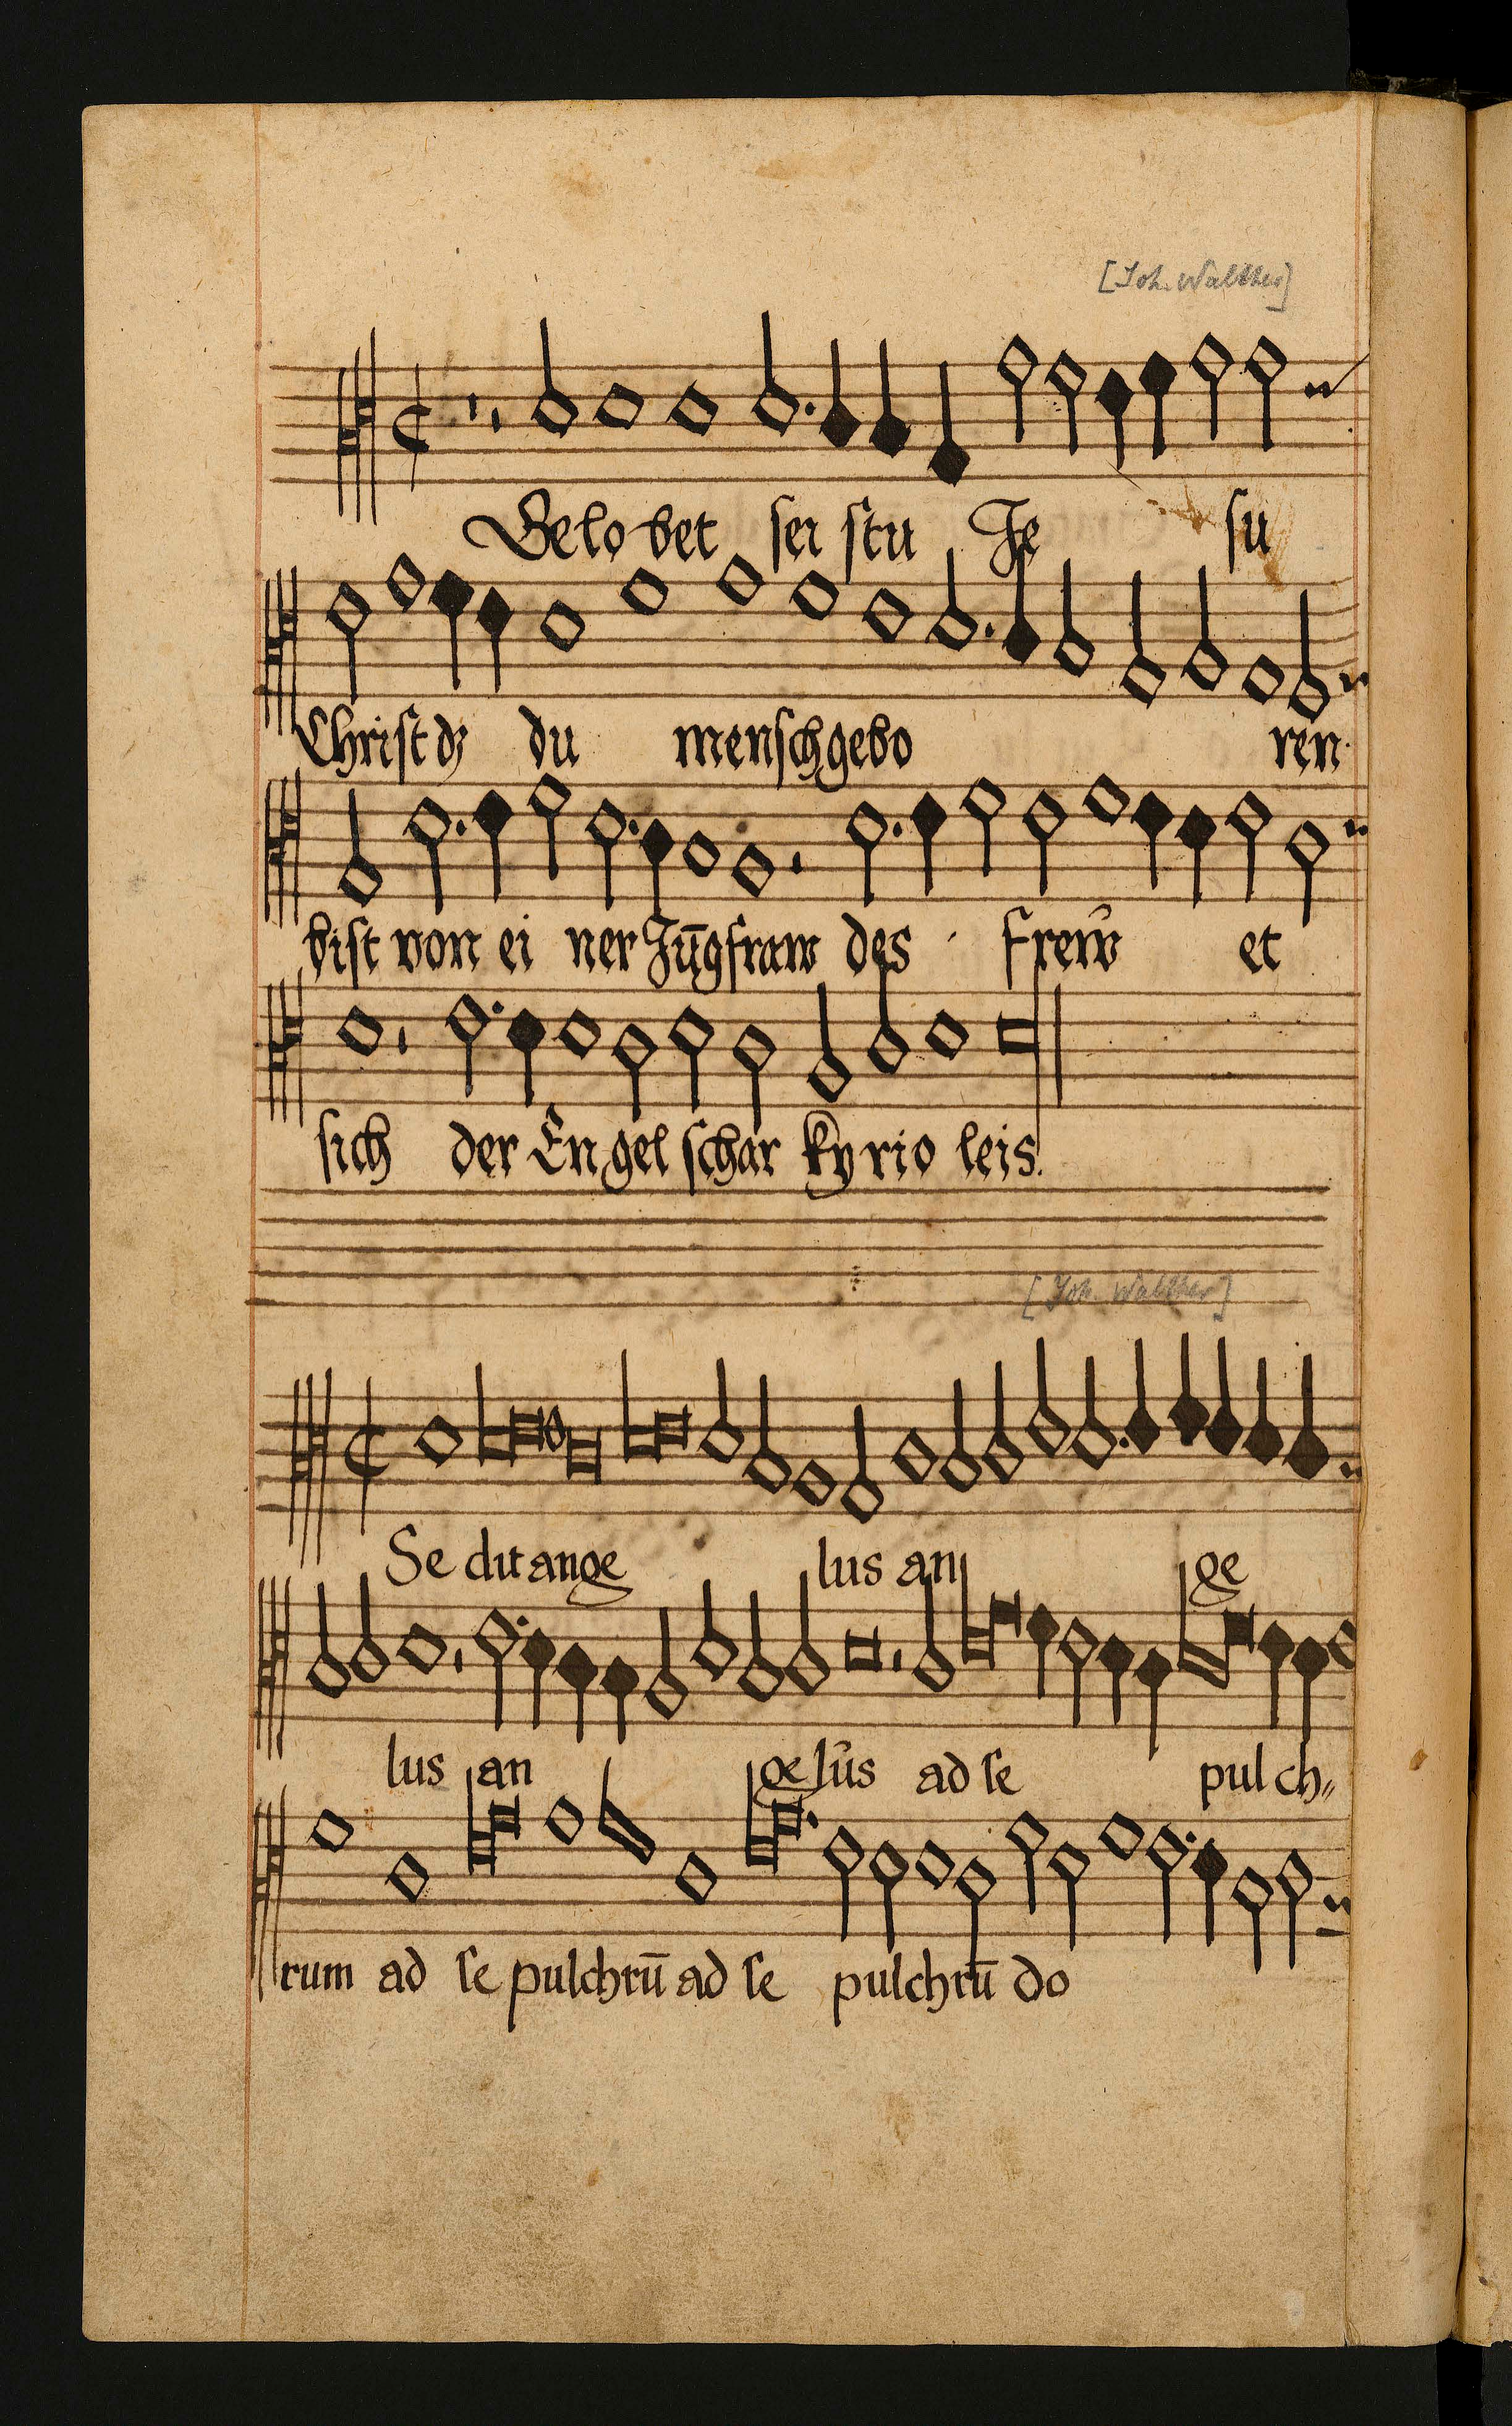 [Joh. Walther]
Gelobet sei stu Je su
Christ dz du mensch gebo ren
bist von ei ner Jūgfraw des frew et
sich der Engel schar kyrio leis.
[Joh. Walther]
Se dit ange lus an ge
lus an gelus ad se pulch
rum ad se pulchrū ad se pulchrū do